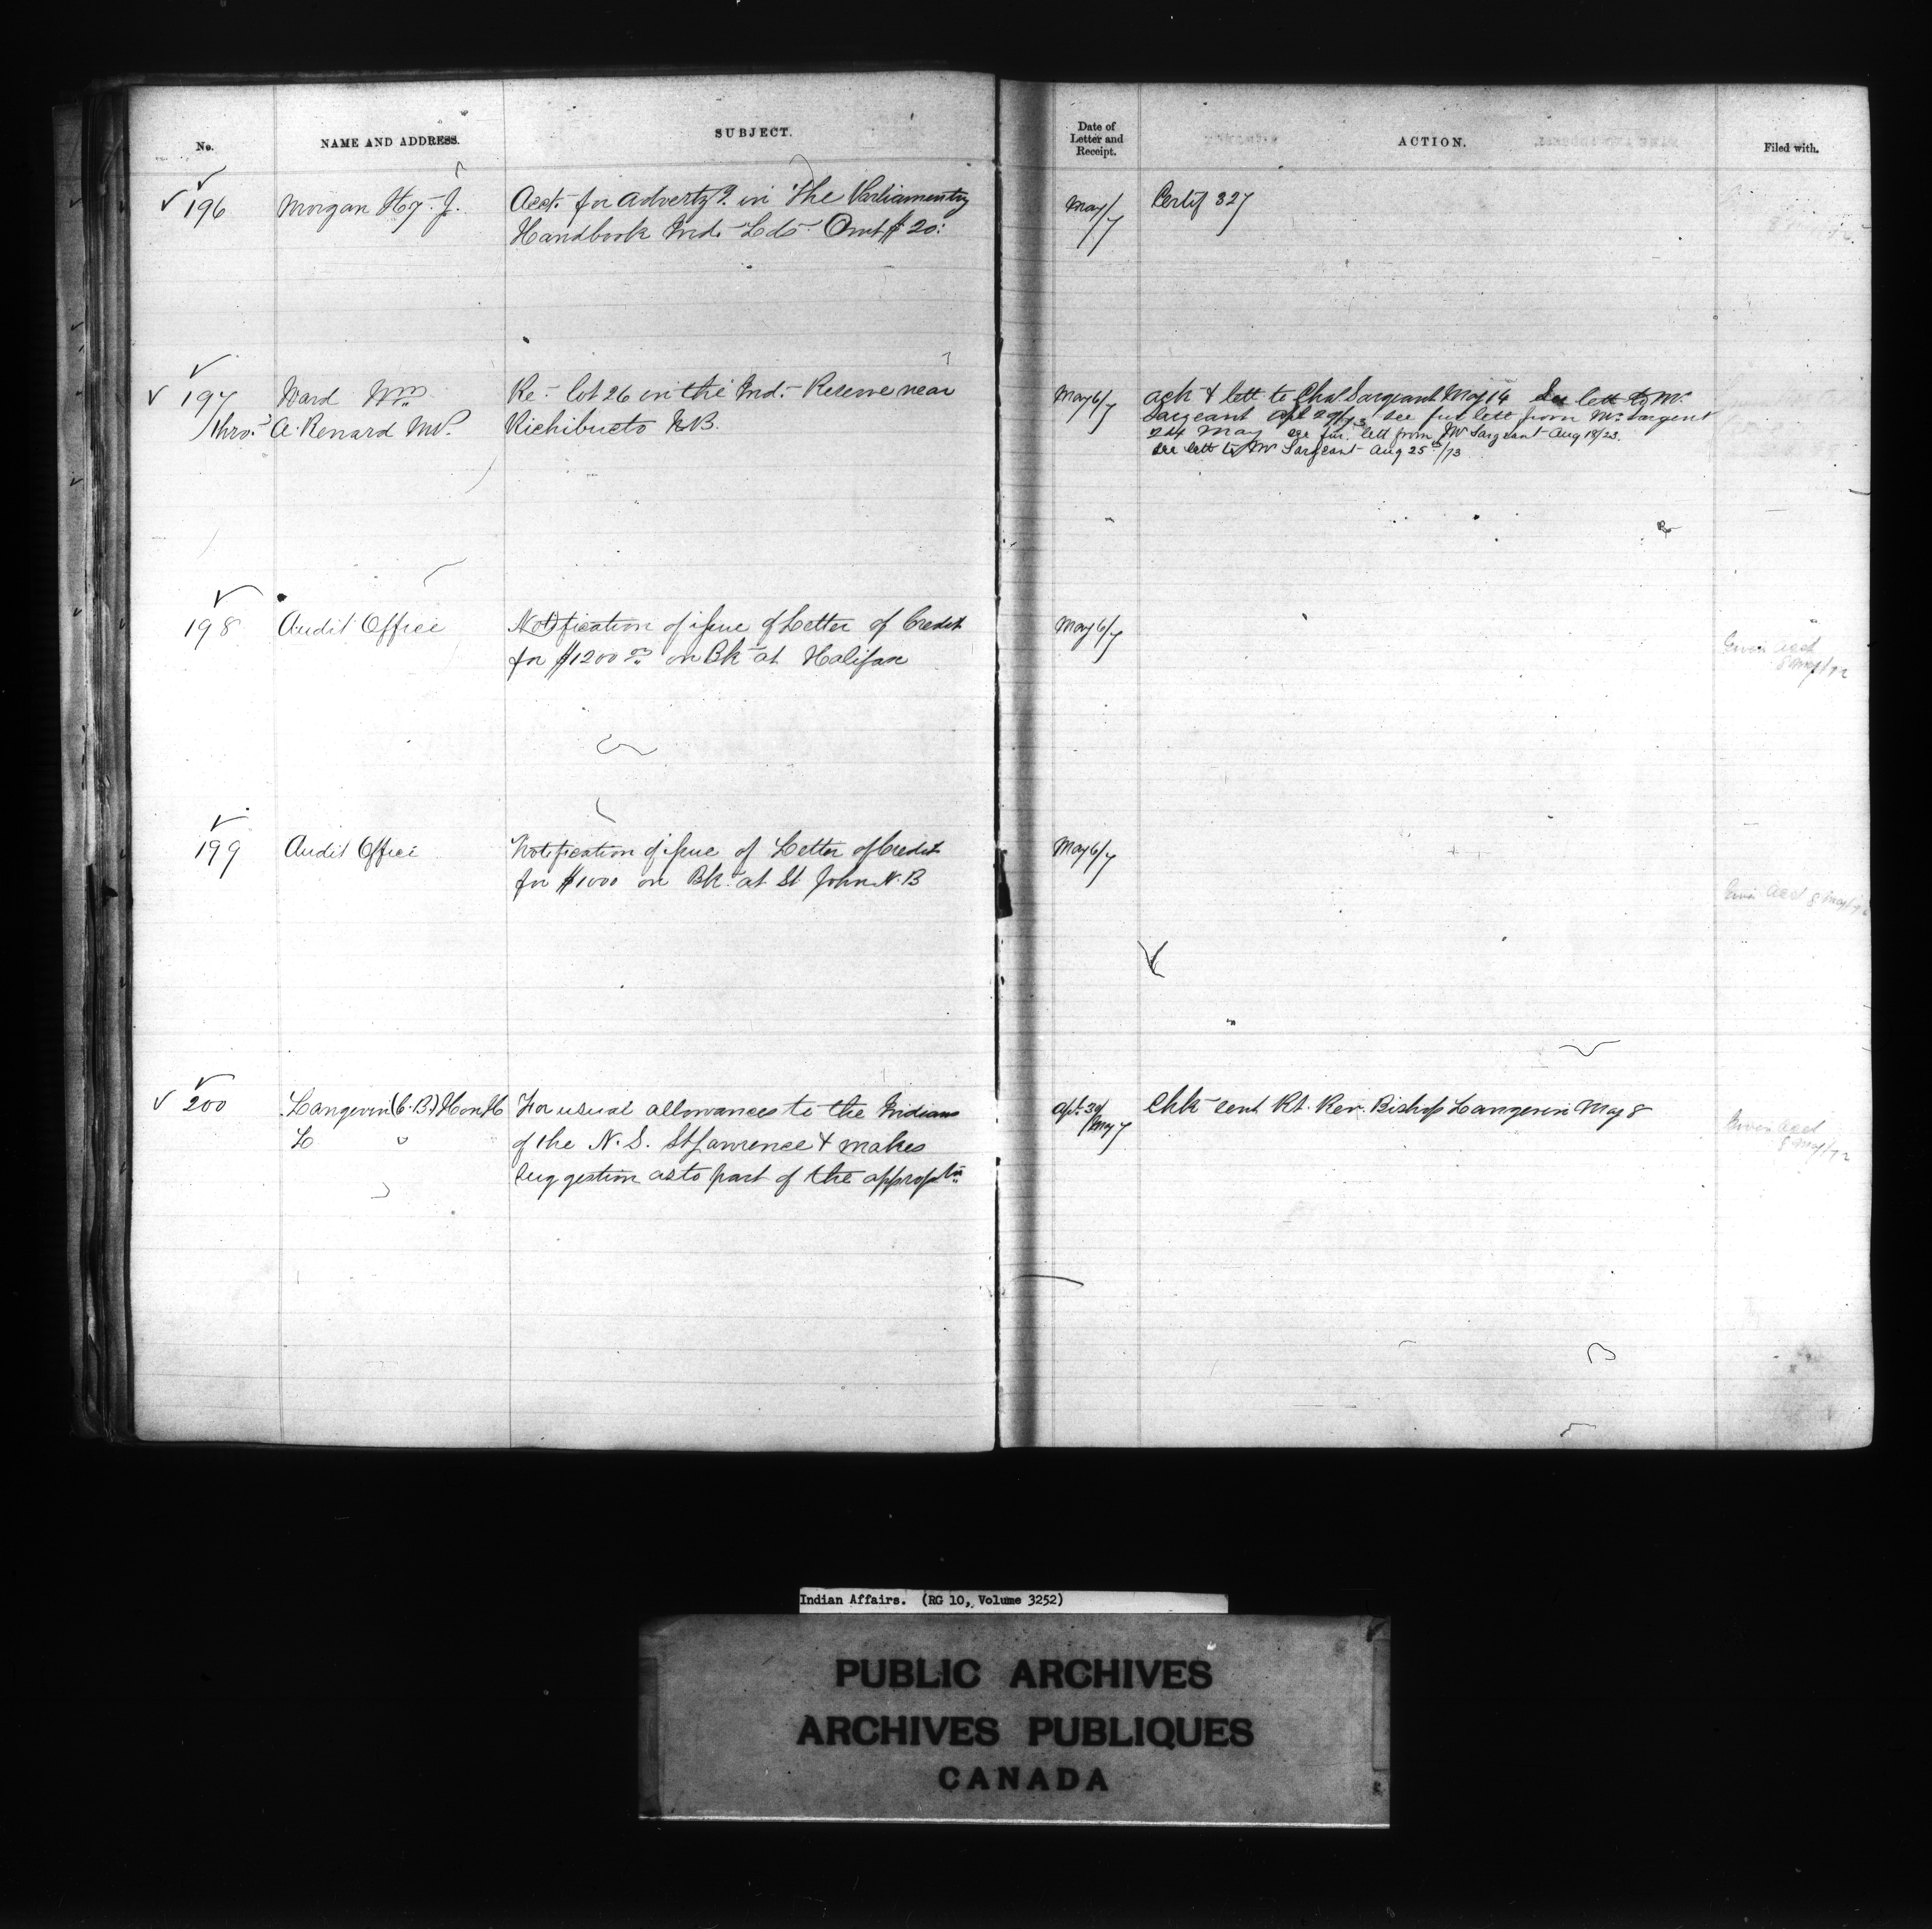 No.
NAME AND ADDRESS.
SUBJECT.
Date of
Letter and
Receipt.
ACTION.
Filed with.
196
Morgan Hy. J.
Acct. for advertzg. in "The Parliamentry
Handbook Ind. Lds. Amt $20.
May/7
Certif 327
197
Ward Wm
Thro. A. Renard MP.
Re- lot 26 in the Ind. Reserve near
Richibucto N.B.
May 6/7
ack & lett to Chas Sargeant May 14 See lett to Mr
Sargeant Apl 29/73 see fur lett from Mr Sargent
24 May see fur. lett from Mr Sargeant Aug 18/23.
See lett to Mr Sargeant Aug 25th/73
198
Audit Office
Notification of issue of Letter of Credit
for $1200 00 on Bk at Halifax
May 6/7
Given acct
8 May/72
199
Audit Office
Notification of issue of Letter of Credit
for $1000 on Bk at St John N.B
May 6/7
Given acct 8 May/72
200
Langevin (C.B.) Hon H
L
For usual allowances to the Indians
of the N.S. St Lawrence & makes
suggestion as to part of the appropn
Apl. 30/May 7
Chk sent Rt. Rev. Bishop Langevin May 8
Given acct
8 May/72
Indian Affairs. (RG 10, Volume 3252)
PUBLIC ARCHIVES
ARCHIVES PUBLIQUES
CANADA